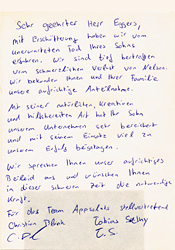 Sehr geehrter Herr Eggers,
mit Erschütterung haben wir vom
unerwarteten Tod Ihres Sohns
erfahren. Wir sind tief betroffen
vom schmerzlichen Verlust von Nelson.
Wir bekunden Ihnen und Ihrer Familie
unsere aufrichtige Anteilnahme.
Mit seiner natürlichen, kreativen
und hilfsbereiten Art hat Ihr Sohn
unser Unternehmen sehr bereichert
und mit seinem Einsatz viel zu
unserem Erfolg beigetragen.
Wir sprechen Ihnen unser aufrichtiges
Beileid aus und wünschen Ihnen
in dieser schweren Zeit die notwendige
Kraft.
Für das Team stellvertretend
Christian Tobias
T. S.